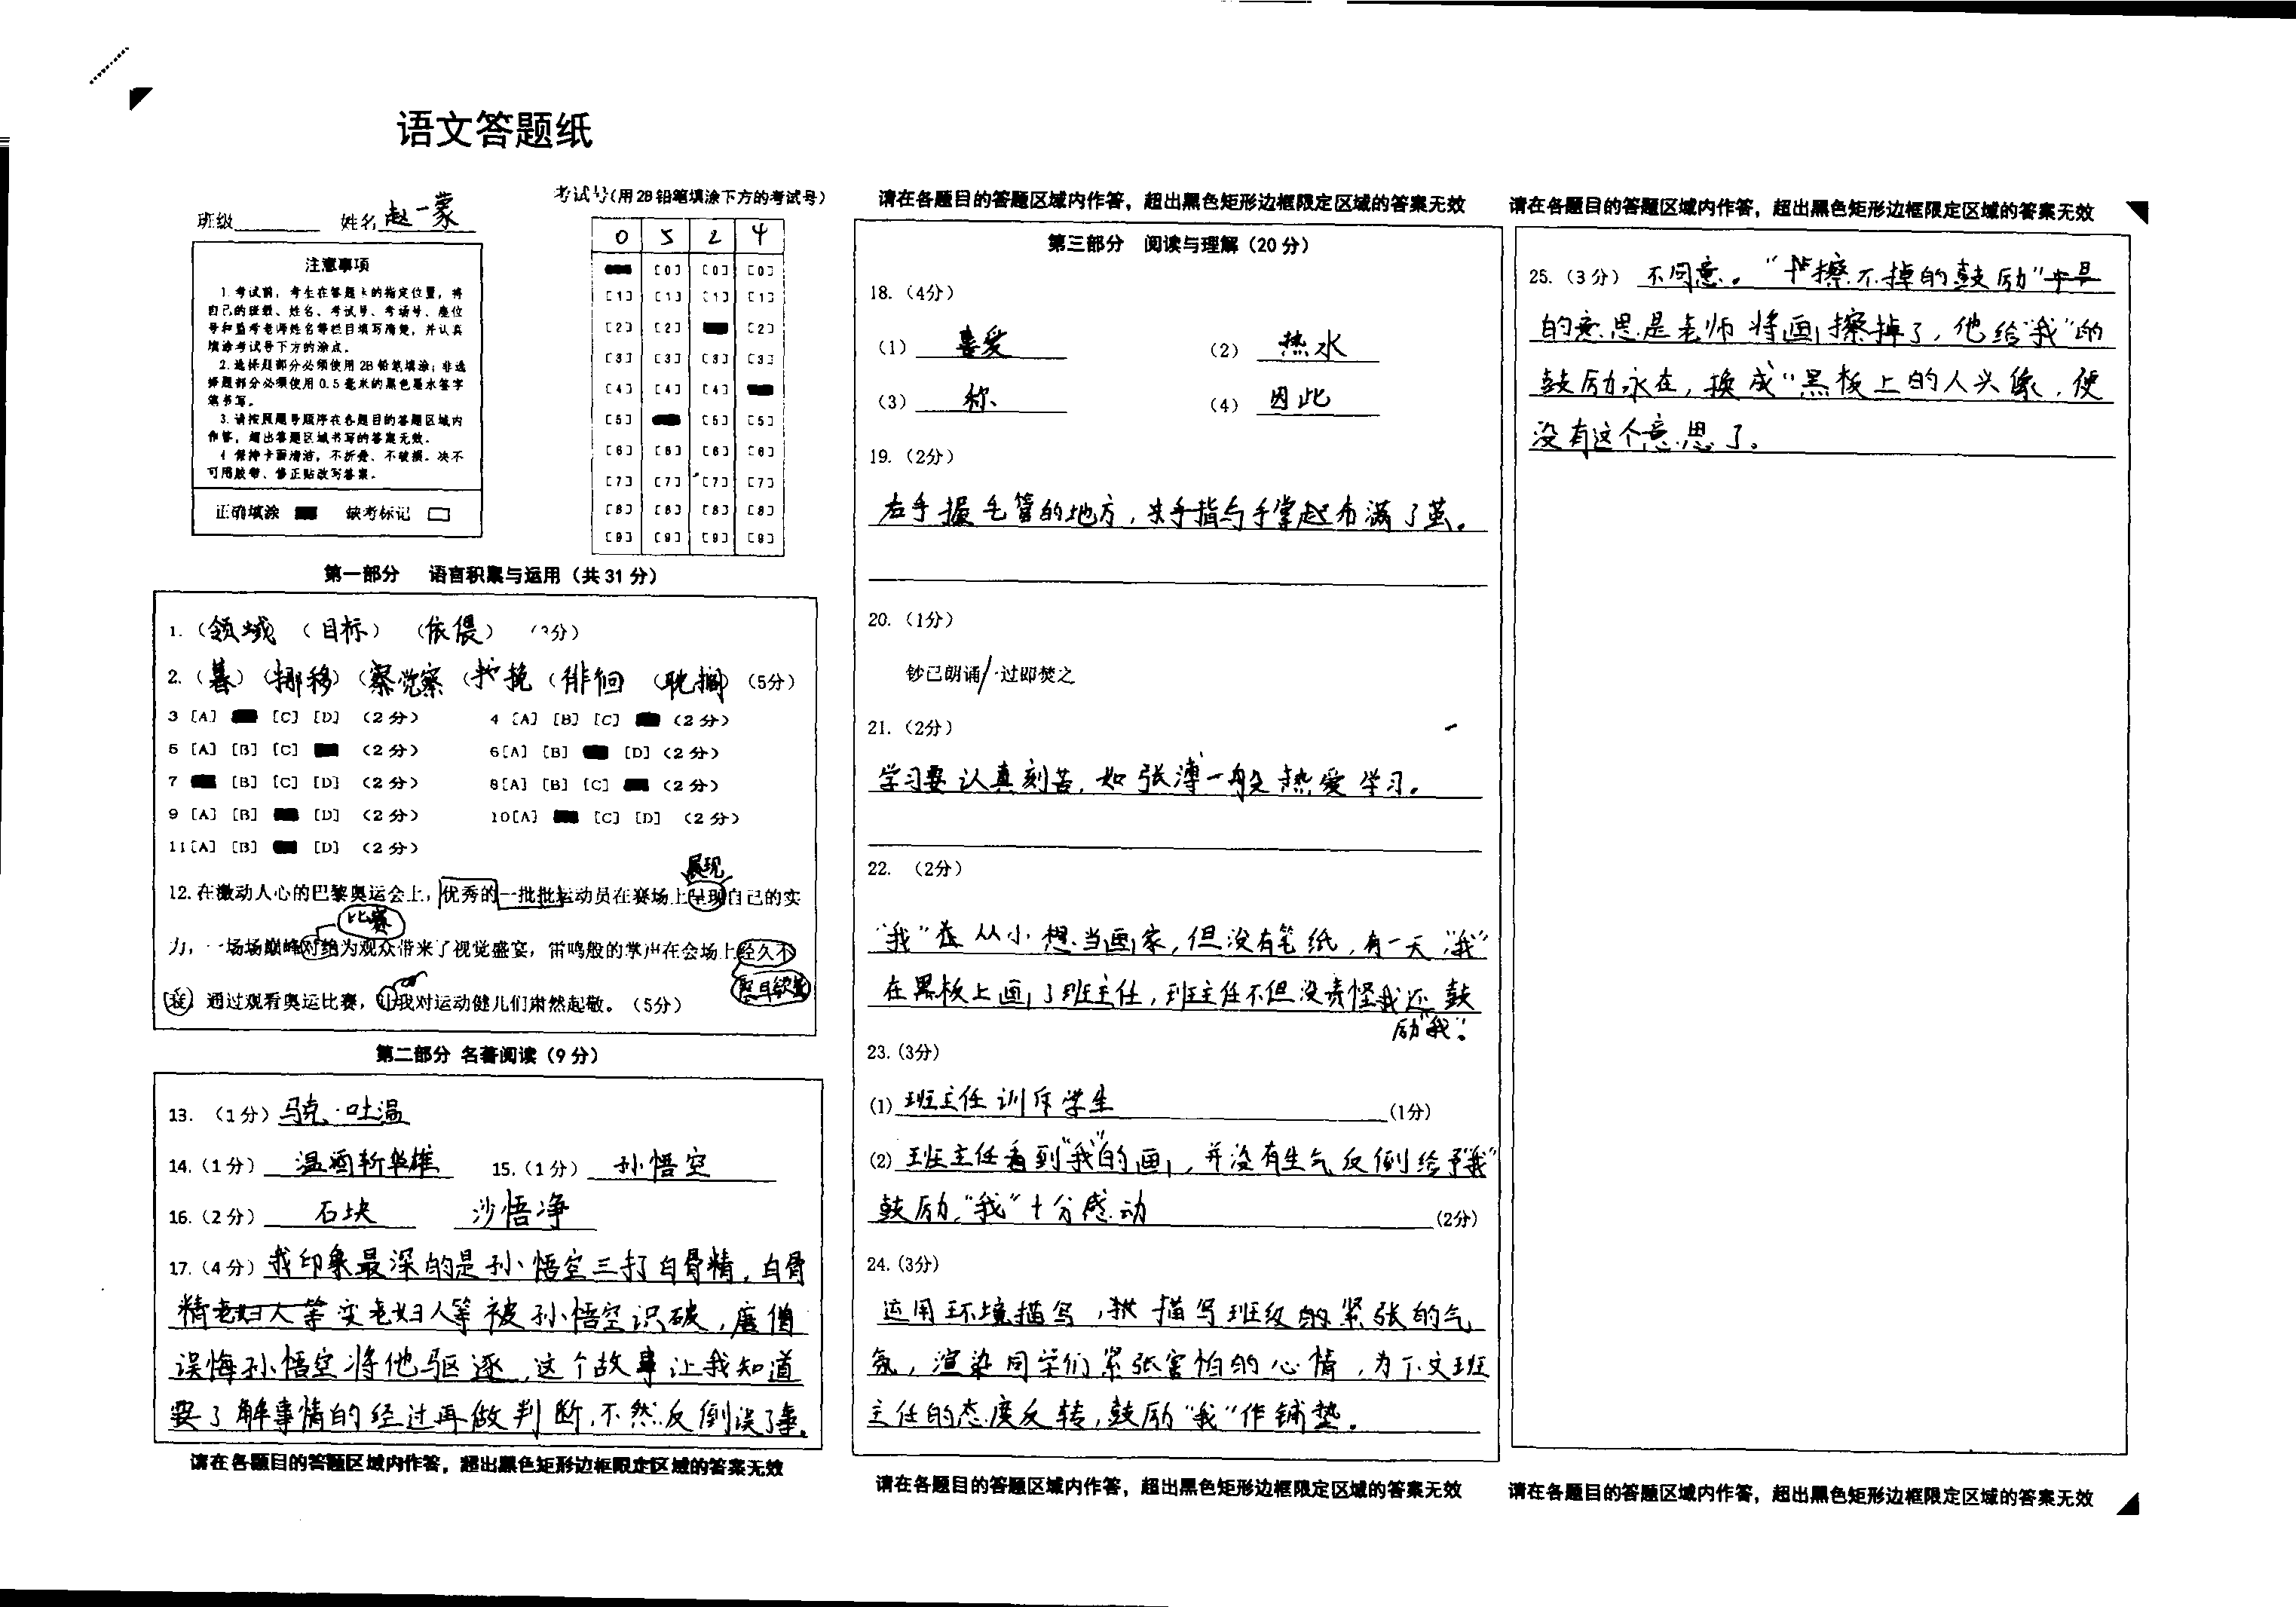 语文答题纸
班级 姓名 赵一蒙
考试号(用2B铅笔填涂下方的考试号)
0 5 2 4
[0] [0] [0]
[1] [1] [1] [1]
[2] [2] [2]
[3] [3] [3] [3]
[4] [4] [4]
[5] [5] [5]
[6] [6] [6] [6]
[7] [7] [7] [7]
[8] [8] [8] [8]
[9] [9] [9] [9]
注意事项
1.考试前,考生在答题卡的指定位置,将
自己的班级、姓名、考试号、考场号、座位
号和监考老师姓名等栏目填写清楚,并认真
填涂考试号下方的涂点。
2.选择题部分必须使用2B铅笔填涂;非选
择题部分必须使用0.5毫米的黑色墨水签字
笔书写。
3.请按照题号顺序在各题目的答题区域内
作答,超出答题区域书写的答案无效。
4 保持卡面清洁,不折叠、不破损。决不
可用胶带、修正贴改写答案。
正确填涂 缺考标记
第一部分 语言积累与运用(共31分)
1.(领域 (目标) (依偎) (3分)
2.(暮)(挪移)(察觉察(护挽(徘徊 (耽搁)(5分)
3 [A] [C] [D] (2分) 4 [A] [B] [C] (2分)
5 [A] [B] [C] (2分) 6[A] [B] [D] (2分)
7 [B] [C] [D] (2分) 8[A] [B] [C] (2分)
9 [A] [B] [D] (2分) 10[A] [C] [D] (2分)
11[A] [B] [D] (2分)
展现
12.在激动人心的巴黎奥运会上,优秀的一批批运动员在赛场上呈现自己的实
比赛
力,一场场巅峰对绝为观众带来了视觉盛宴,雷鸣般的掌声在会场上经久不
衰。通过观看奥运比赛,让我对运动健儿们肃然起敬。(5分)
第二部分 名著阅读(9分)
13.(1分)马克·吐温
14.(1分) 温酒斩华雄 15.(1分) 孙悟空
16.(2分) 石块 沙悟净
17.(4分) 我印象最深的是孙悟空三打白骨精,白骨
精老妇人等变老妇人等被孙悟空识破,唐僧
误悔孙悟空将他驱逐,这个故事让我知道
要了解事情的经过再做判断,不然反倒误了事。
请在各题目的答题区域内作答,超出黑色矩形边框限定区域的答案无效
请在各题目的答题区域内作答,超出黑色矩形边框限定区域的答案无效
第三部分 阅读与理解(20分)
18.(4分)
(1) 喜爱 (2) 热水
(3) 称 (4) 因此
19.(2分)
右手握毛管的地方,手指与手掌起布满了茧。
20.(1分)
钞已朗诵/一过即焚之
21.(2分)
学习要认真刻苦,如张溥一般热爱学习。
22.(2分)
“我”从小想当画家,但没有笔纸,有一天,“我”
在黑板上画了班主任,班主任不但没责怪我还鼓
励“我”。
23.(3分)
(1) 班主任训斥学生 (1分)
(2) 班主任看到“我”的画,并没有生气反倒给予“我”
鼓励,“我”十分感动 (2分)
24.(3分)
运用环境描写,描写班级的紧张的气
氛,渲染同学们紧张害怕的心情,为下文班
主任的态度反转,鼓励“我”作铺垫。
请在各题目的答题区域内作答,超出黑色矩形边框限定区域的答案无效
请在各题目的答题区域内作答,超出黑色矩形边框限定区域的答案无效
25.(3分) 不同意。“擦不掉的鼓励”
的意思是老师将画擦掉了,他给“我”的
鼓励永在,换成“黑板上的人头像,便
没有这个意思了。
请在各题目的答题区域内作答,超出黑色矩形边框限定区域的答案无效